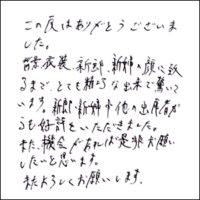 この度はありがとうございま
した。
背景、衣装、新郎、新婦の顔に致
るまで、とても精巧な出来で驚いて
います。新郎・新婦や他の出席者から
も好評をいただきました。
また、機会があれば是非お願い
したいと思います。
またよろしくお願いします。